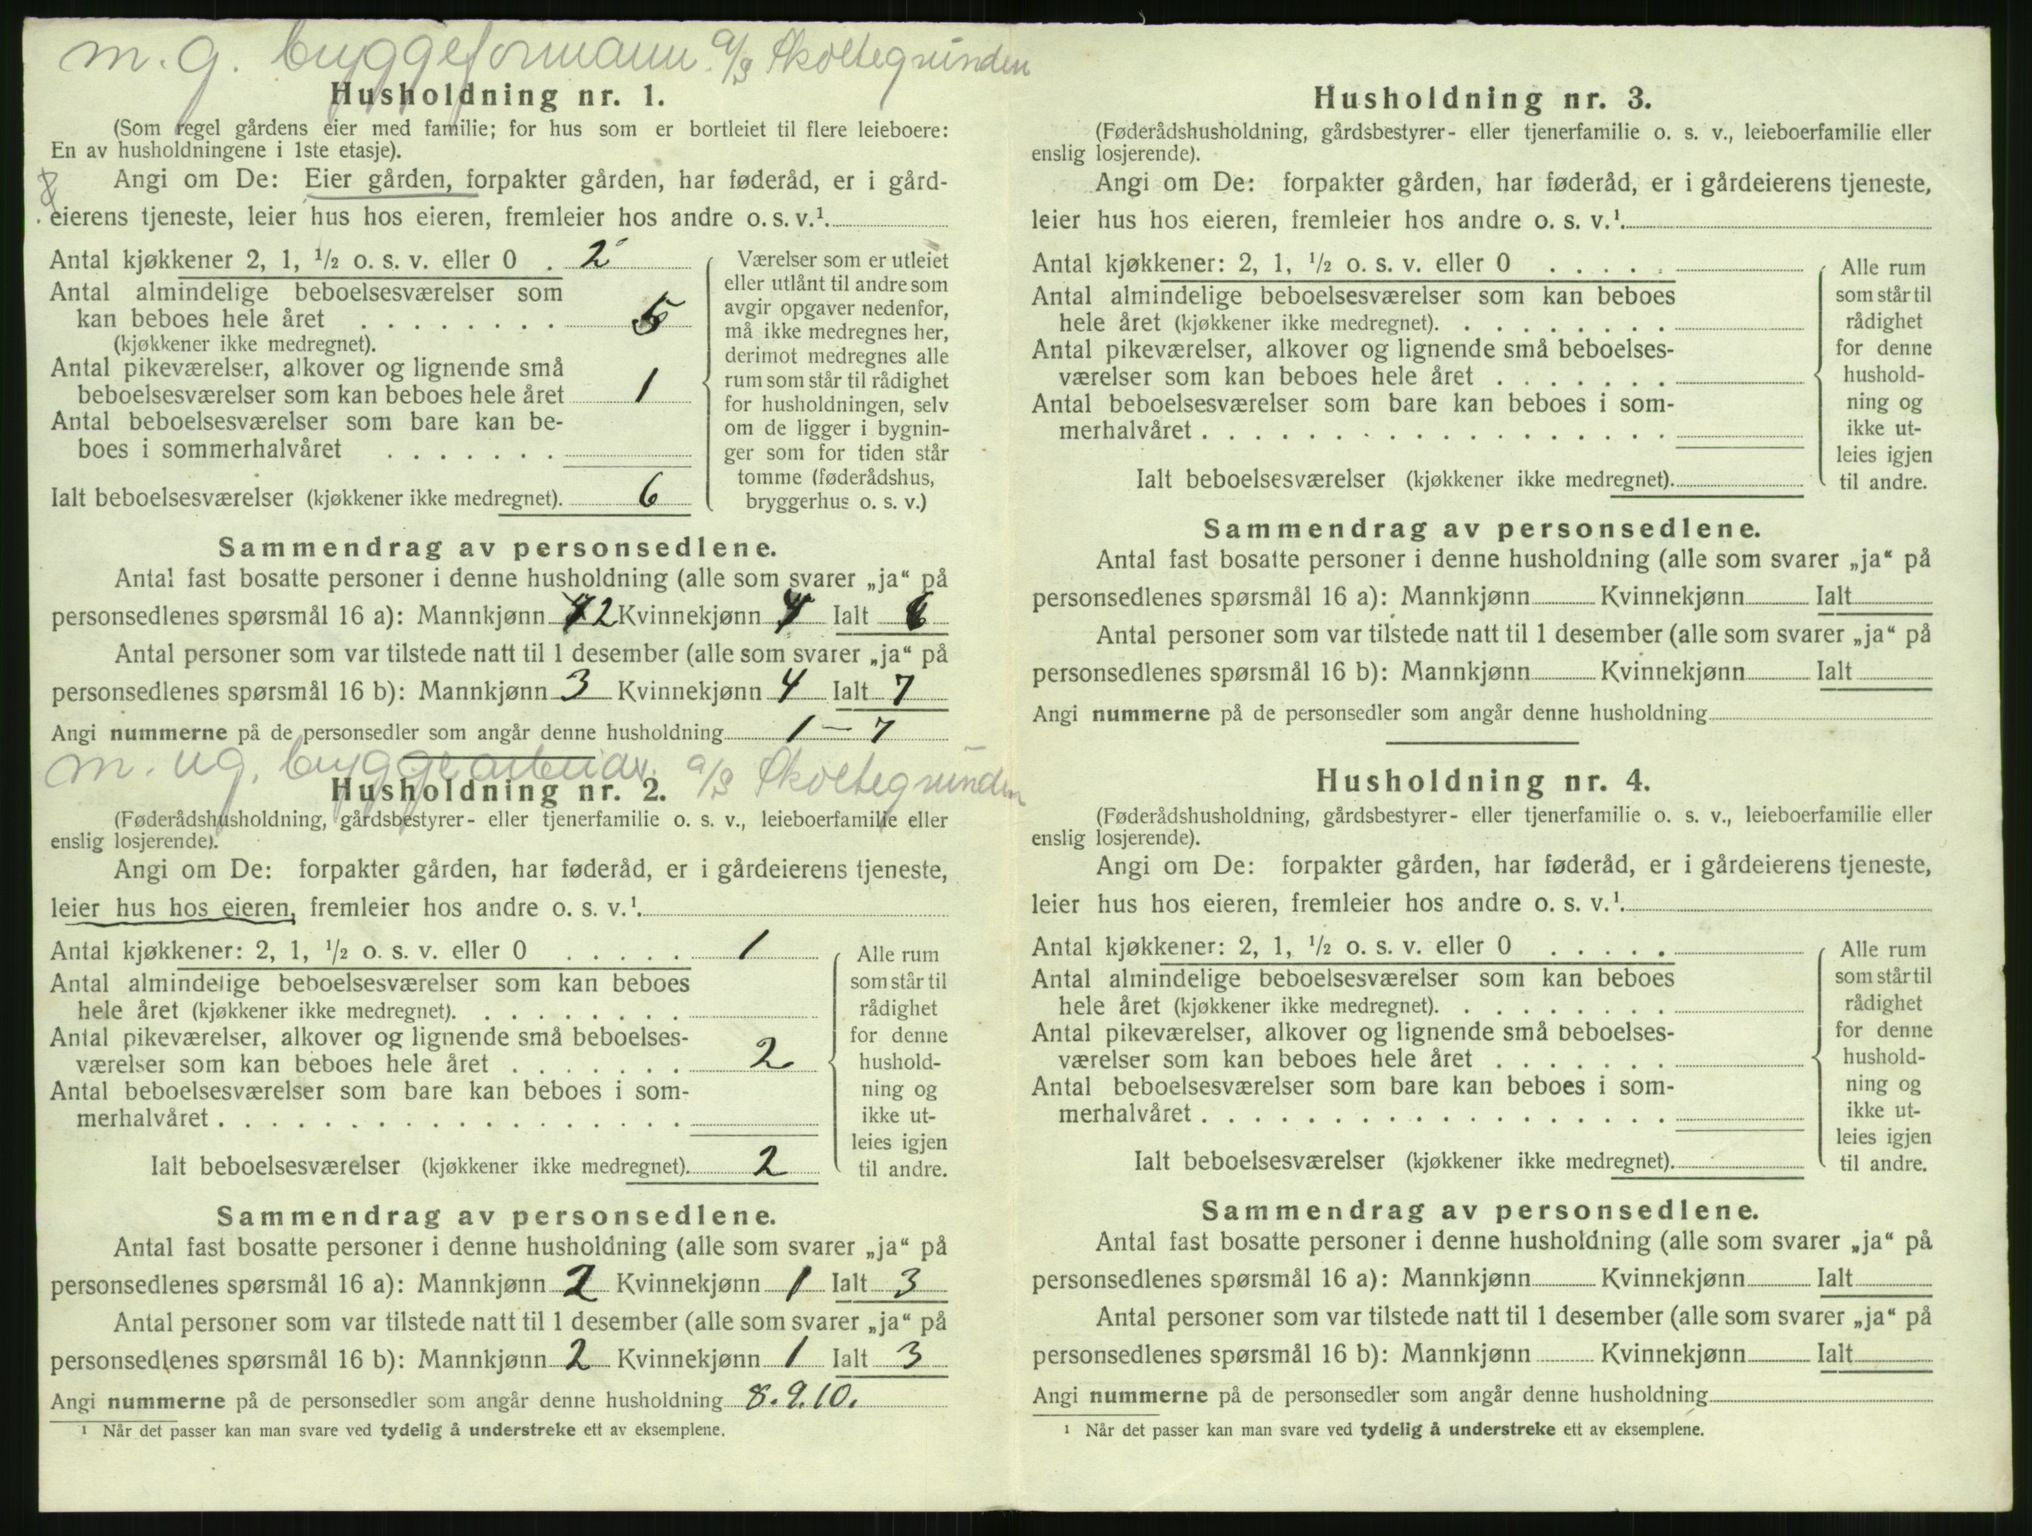 m. g. byggeformann. a/s Skoltegrunden
Husholdning nr. 1.
(Som regel gårdens eier med familie; for hus som er bortleiet til flere leieboere:
En av husholdningene i 1ste etasje).
Angi om De: Eier gården, forpakter gården, har føderåd, er i gård-
eierens tjeneste, leier hus hos eieren, fremleier hos andre o. s. v.¹
Antal kjøkkener 2, 1, ½ o. s. v. eller 0 . 2
Antal almindelige beboelsesværelser som
kan beboes hele året . . . . . . . . 5
(kjøkkener ikke medregnet).
Antal pikeværelser, alkover og lignende små
beboelsesværelser som kan beboes hele året 1
Antal beboelsesværelser som bare kan be-
boes i sommerhalvåret . . . . . . .
Ialt beboelsesværelser (kjøkkener ikke medregnet). 6
Værelser som er utleiet
eller utlånt til andre som
avgir opgaver nedenfor,
må ikke medregnes her,
derimot medregnes alle
rum som står til rådighet
for husholdningen, selv
om de ligger i bygnin-
ger som for tiden står
tomme (føderådshus,
bryggerhus o. s. v.)
Sammendrag av personsedlene.
Antal fast bosatte personer i denne husholdning (alle som svarer „ja“ på
personsedlenes spørsmål 16 a): Mannkjønn 2 Kvinnekjønn 4 Ialt 6
Antal personer som var tilstede natt til 1 desember (alle som svarer „ja“ på
personsedlenes spørsmål 16 b): Mannkjønn 3 Kvinnekjønn 4 Ialt 7
Angi nummerne på de personsedler som angår denne husholdning 1 — 7
m. ug. byggearbeider. a/s Skoltegrunden
Husholdning nr. 2.
(Føderådshusholdning, gårdsbestyrer- eller tjenerfamilie o. s. v., leieboerfamilie eller
enslig losjerende).
Angi om De: forpakter gården, har føderåd, er i gårdeierens tjeneste,
leier hus hos eieren, fremleier hos andre o. s. v.¹
Antal kjøkkener: 2, 1, ½ o. s. v. eller 0 . . . . . 1
Antal almindelige beboelsesværelser som kan beboes
hele året (kjøkkener ikke medregnet). . . . . . . . .
Antal pikeværelser, alkover og lignende små beboelses-
værelser som kan beboes hele året . . . . . . . 2
Antal beboelsesværelser som bare kan beboes i som-
merhalvåret . . . . . . . . . . . . . . . . . .
Ialt beboelsesværelser (kjøkkener ikke medregnet). 2
Alle rum
som står til
rådighet
for denne
hushold-
ning og
ikke ut-
leies igjen
til andre.
Sammendrag av personsedlene.
Antal fast bosatte personer i denne husholdning (alle som svarer „ja“ på
personsedlenes spørsmål 16 a): Mannkjønn 2 Kvinnekjønn 1 Ialt 3
Antal personer som var tilstede natt til 1 desember (alle som svarer „ja“ på
personsedlenes spørsmål 16 b): Mannkjønn 2 Kvinnekjønn 1 Ialt 3
Angi nummerne på de personsedler som angår denne husholdning 8. 9. 10.
¹ Når det passer kan man svare ved tydelig å understreke ett av eksemplene.
Husholdning nr. 3.
(Føderådshusholdning, gårdsbestyrer- eller tjenerfamilie o. s. v., leieboerfamilie eller
enslig losjerende).
Angi om De: forpakter gården, har føderåd, er i gårdeierens tjeneste,
leier hus hos eieren, fremleier hos andre o. s. v.¹
Antal kjøkkener: 2, 1, ½ o. s. v. eller 0 . . . . .
Antal almindelige beboelsesværelser som kan beboes
hele året (kjøkkener ikke medregnet). . . . . . . . .
Antal pikeværelser, alkover og lignende små beboelses-
værelser som kan beboes hele året . . . . . . .
Antal beboelsesværelser som bare kan beboes i som-
merhalvåret . . . . . . . . . . . . . . . . . .
Ialt beboelsesværelser (kjøkkener ikke medregnet).
Alle rum
som står til
rådighet
for denne
hushold-
ning og
ikke ut-
leies igjen
til andre.
Sammendrag av personsedlene.
Antal fast bosatte personer i denne husholdning (alle som svarer „ja“ på
personsedlenes spørsmål 16 a): Mannkjønn Kvinnekjønn Ialt
Antal personer som var tilstede natt til 1 desember (alle som svarer „ja“ på
personsedlenes spørsmål 16 b): Mannkjønn Kvinnekjønn Ialt
Angi nummerne på de personsedler som angår denne husholdning
Husholdning nr. 4.
(Føderådshusholdning, gårdsbestyrer- eller tjenerfamilie o. s. v., leieboerfamilie eller
enslig losjerende).
Angi om De: forpakter gården, har føderåd, er i gårdeierens tjeneste,
leier hus hos eieren, fremleier hos andre o. s. v.¹
Antal kjøkkener: 2, 1, ½ o. s. v. eller 0 . . . . .
Antal almindelige beboelsesværelser som kan beboes
hele året (kjøkkener ikke medregnet). . . . . . . . .
Antal pikeværelser, alkover og lignende små beboelses-
værelser som kan beboes hele året . . . . . . .
Antal beboelsesværelser som bare kan beboes i som-
merhalvåret . . . . . . . . . . . . . . . . . .
Ialt beboelsesværelser (kjøkkener ikke medregnet).
Alle rum
som står til
rådighet
for denne
hushold-
ning og
ikke ut-
leies igjen
til andre.
Sammendrag av personsedlene.
Antal fast bosatte personer i denne husholdning (alle som svarer „ja“ på
personsedlenes spørsmål 16 a): Mannkjønn Kvinnekjønn Ialt
Antal personer som var tilstede natt til 1 desember (alle som svarer „ja“ på
personsedlenes spørsmål 16 b): Mannkjønn Kvinnekjønn Ialt
Angi nummerne på de personsedler som angår denne husholdning
¹ Når det passer kan man svare ved tydelig å understreke ett av eksemplene.